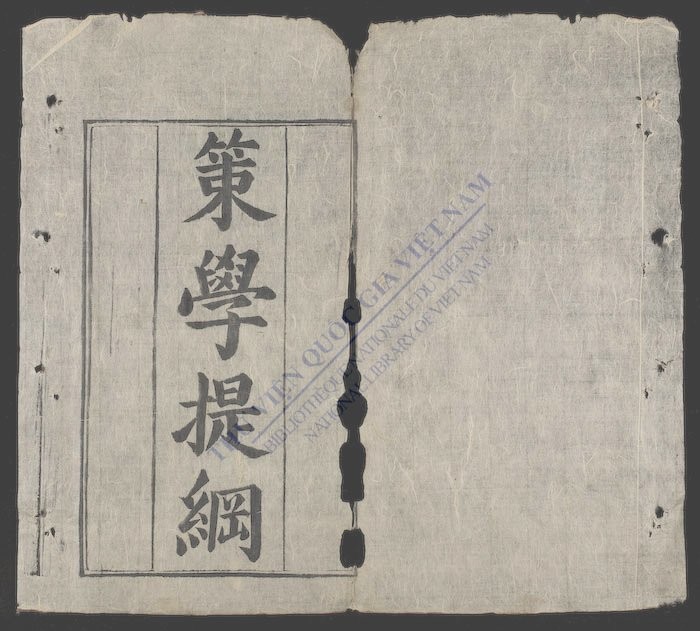 策學提綱
THƯ VIỆN QUỐC GIA VIỆT NAM
BIBLIOTHÈQUE NATIONALE DU VIETNAM
NATIONAL LIBRARY OF VIETNAM